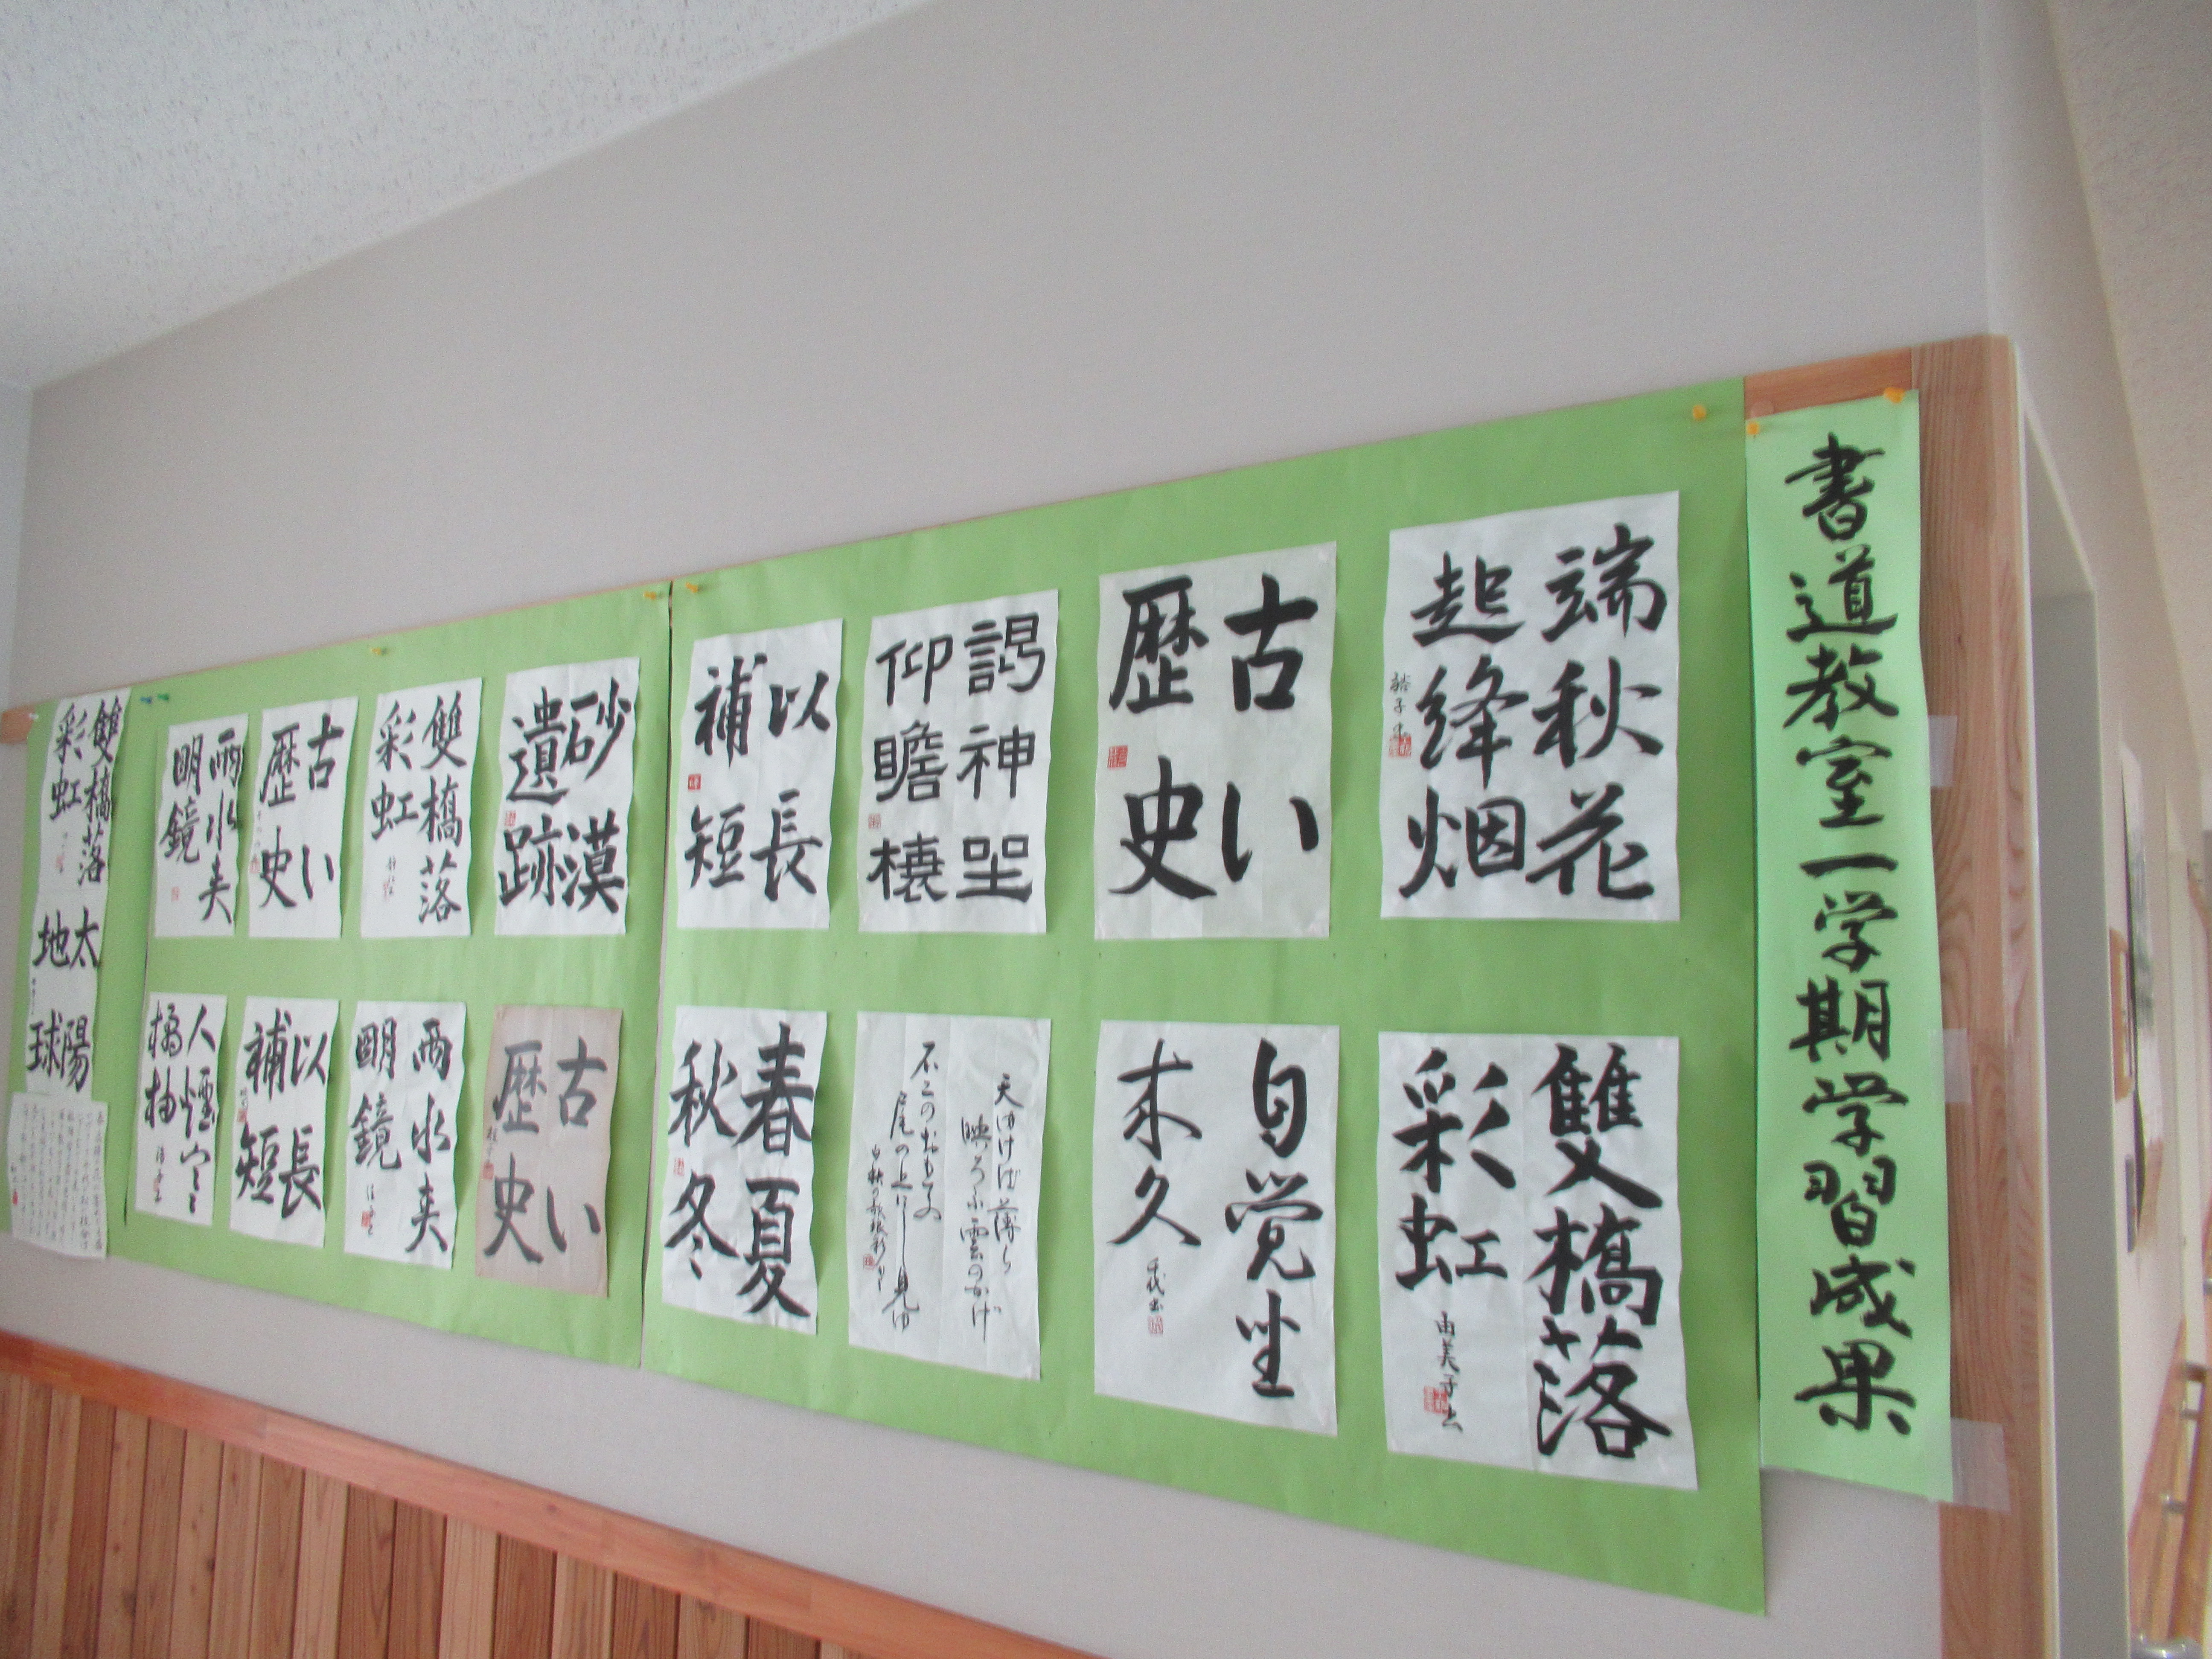 書道教室一学期学習成果
端秋花
起绛烟
古い
歴史
謁神聖
仰瞻棲
以長
補短
雙橋落
彩虹
由美子書
自覚坐
未久
天ゆけば薄ら
映ろふ雲のかげ
不二のおもての
尾の上にし見ゆ
春夏
秋冬
砂漠
遺跡
雙橋落
彩虹
古い
歴史
兩水夹
明鏡
古い
歴史
兩水夹
明鏡
以長
補短
人煙寒
橘柚
雙橋落
彩虹
太陽
地球